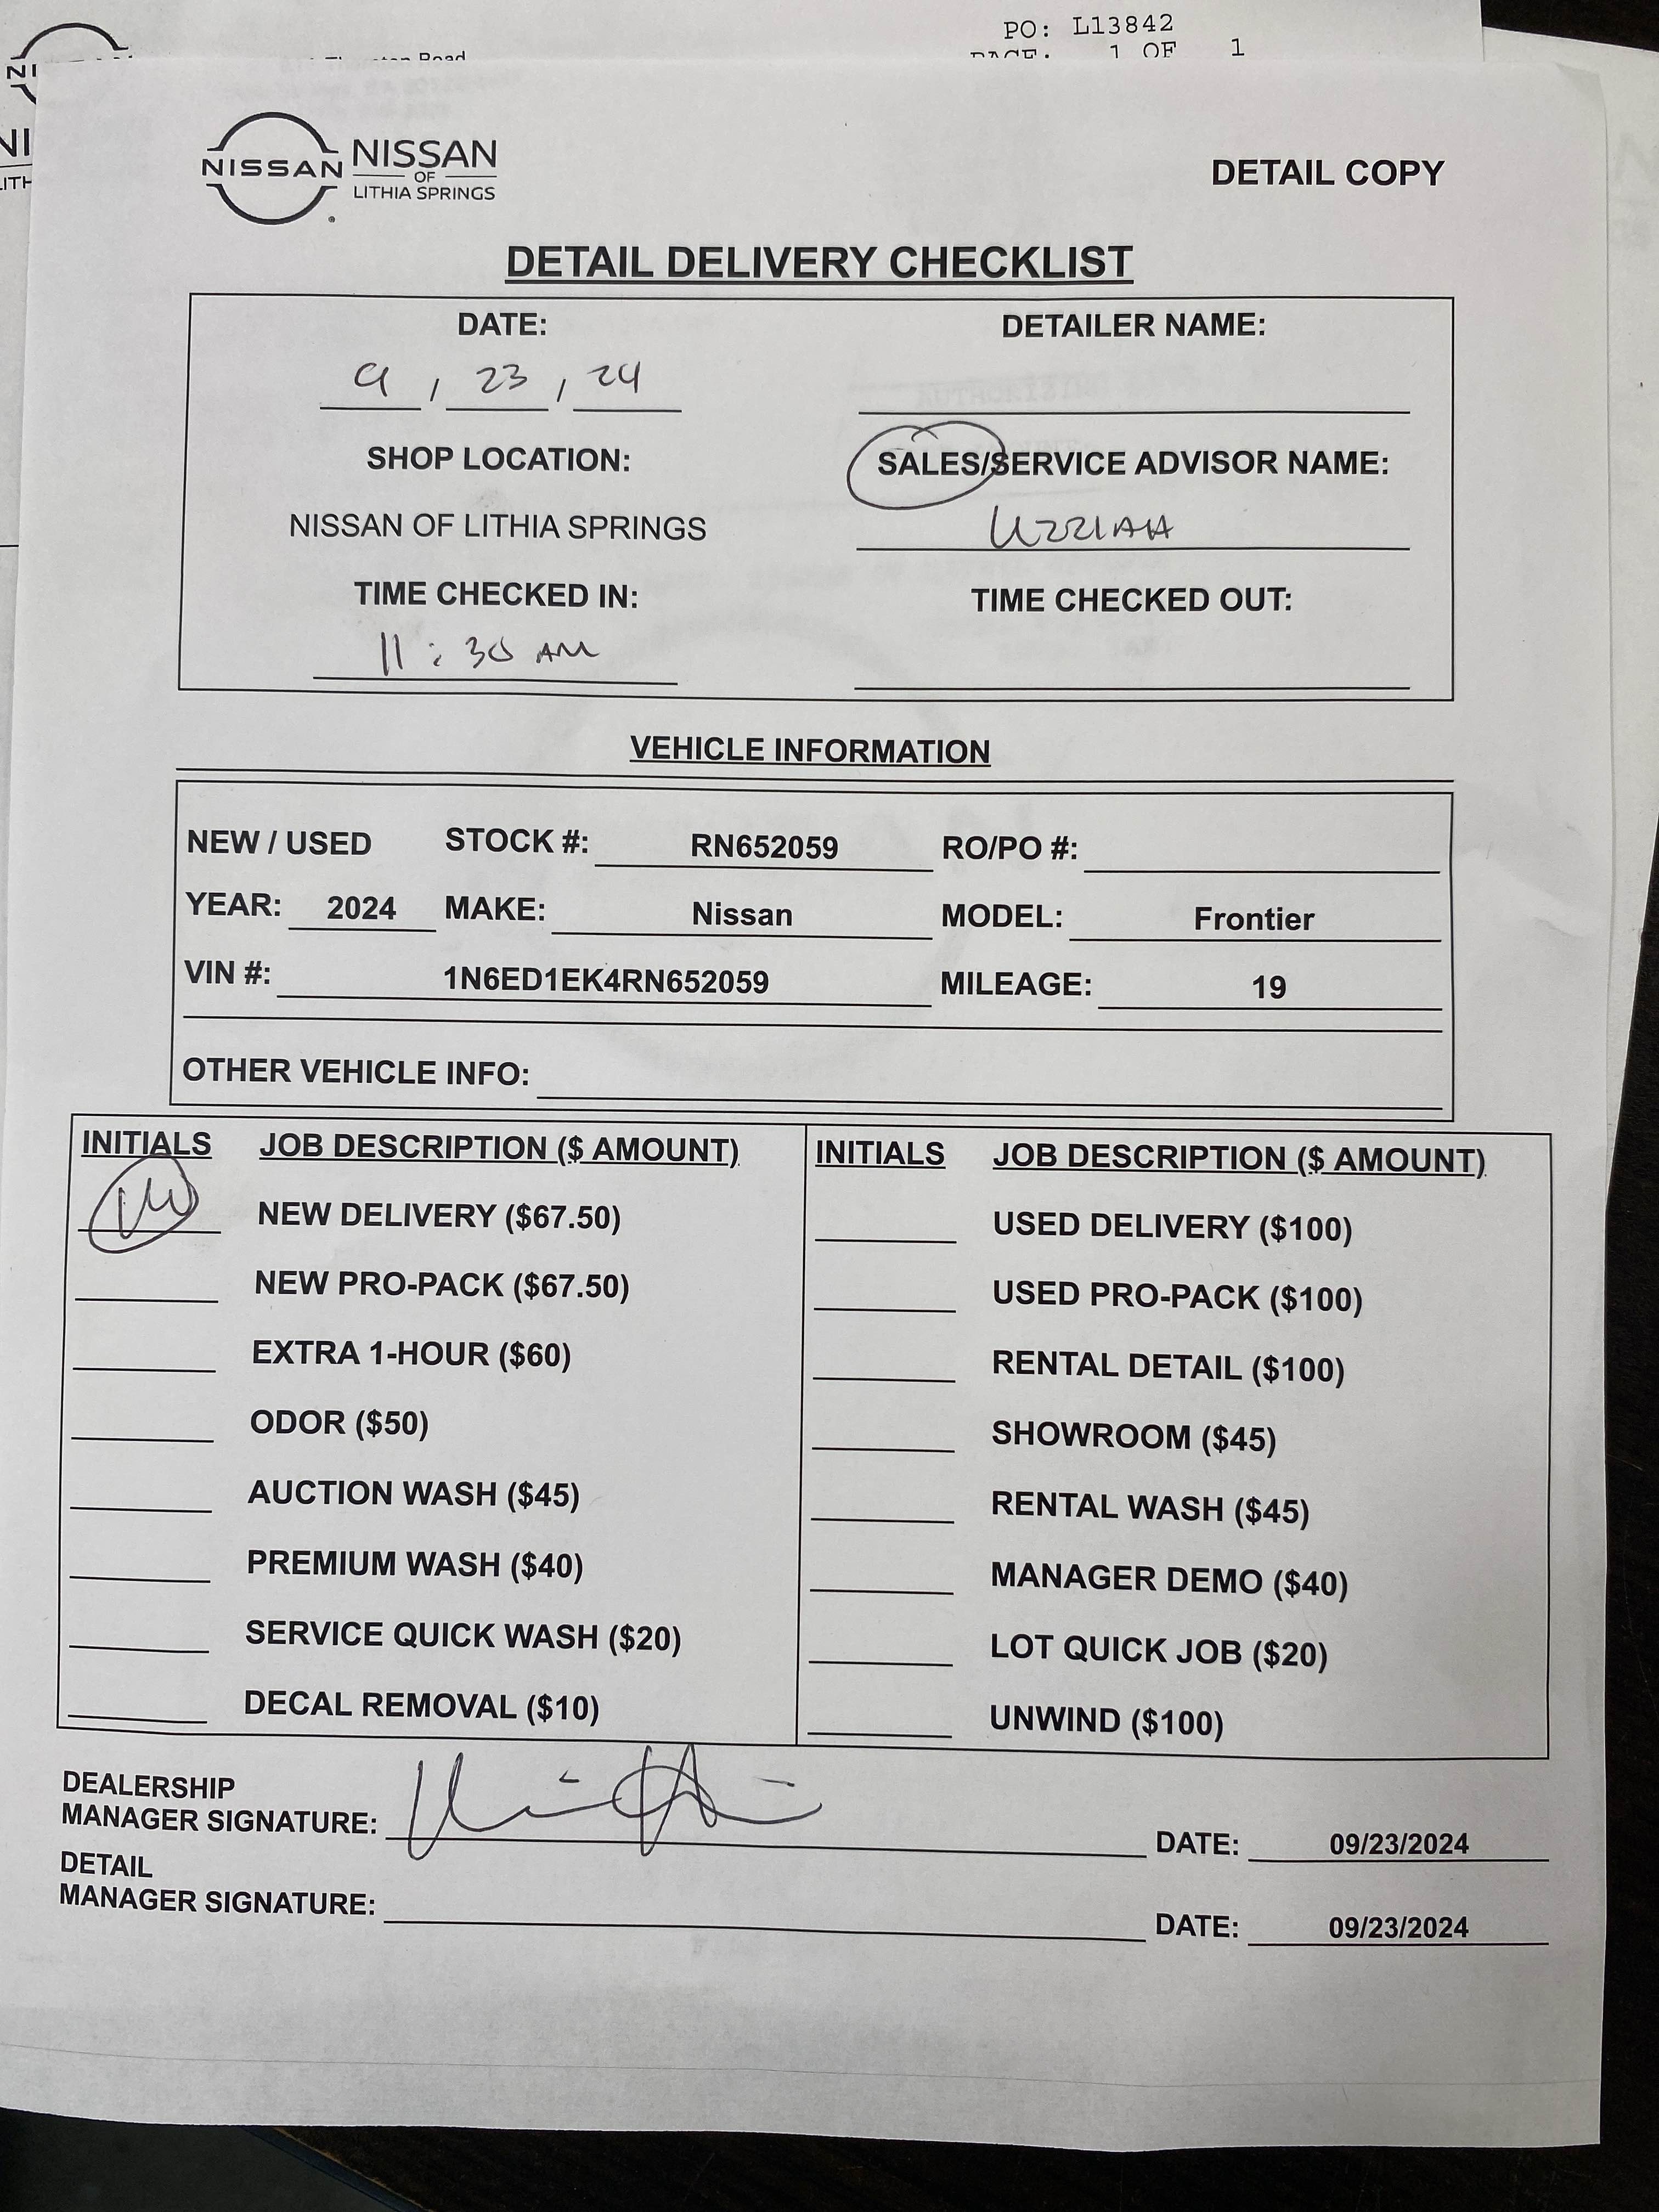 PO: L13842
1 OF 1
Road
NI
NISSAN
NISSAN
OF
LITHIA SPRINGS
DETAIL COPY
DETAIL DELIVERY CHECKLIST
DATE:
DETAILER NAME:
9 / 23 / 24
SHOP LOCATION:
SALES/SERVICE ADVISOR NAME:
NISSAN OF LITHIA SPRINGS
UZZIAH
TIME CHECKED IN:
TIME CHECKED OUT:
11:30 AM
VEHICLE INFORMATION
NEW / USED STOCK #: RN652059 RO/PO #:
YEAR: 2024 MAKE: Nissan MODEL: Frontier
VIN #: 1N6ED1EK4RN652059 MILEAGE: 19
OTHER VEHICLE INFO:
INITIALS JOB DESCRIPTION ($ AMOUNT) INITIALS JOB DESCRIPTION ($ AMOUNT)
NEW DELIVERY ($67.50) USED DELIVERY ($100)
NEW PRO-PACK ($67.50) USED PRO-PACK ($100)
EXTRA 1-HOUR ($60) RENTAL DETAIL ($100)
ODOR ($50) SHOWROOM ($45)
AUCTION WASH ($45) RENTAL WASH ($45)
PREMIUM WASH ($40) MANAGER DEMO ($40)
SERVICE QUICK WASH ($20) LOT QUICK JOB ($20)
DECAL REMOVAL ($10) UNWIND ($100)
DEALERSHIP
MANAGER SIGNATURE: DATE: 09/23/2024
DETAIL
MANAGER SIGNATURE: DATE: 09/23/2024